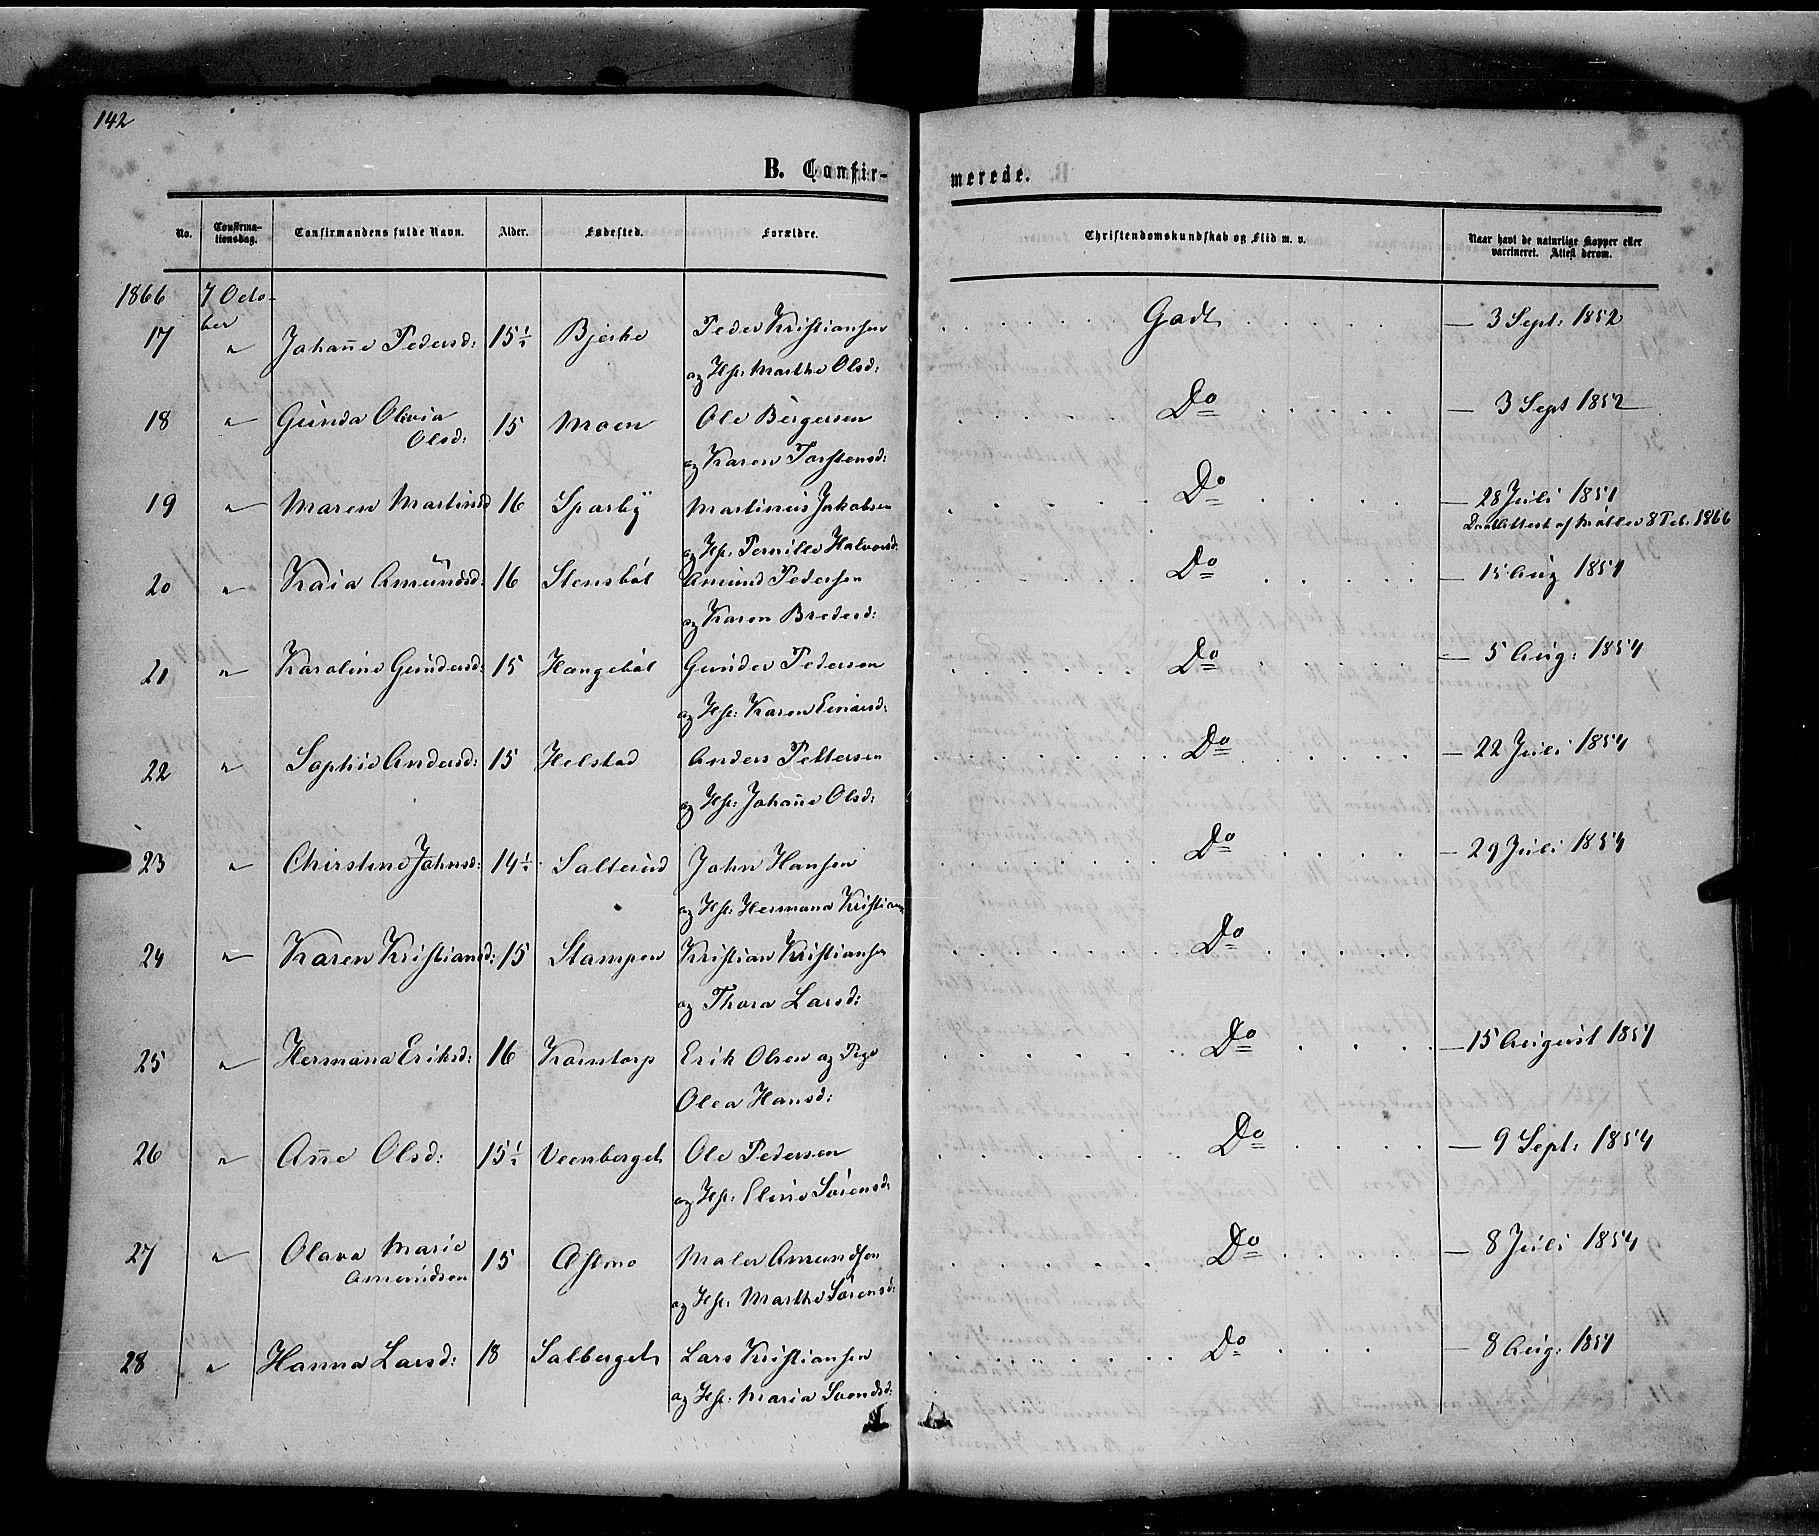 142
B. Confirmerede.
No. | Confirmationsdag. | Confirmandens fulde Navn. | Alder. | Fødested. | Forældre. | Christendomskundskab og Flid m. v. | Naar havt de naturlige Kopper eller vaccineret. Attest derom.
1866 7 Octo-
ber
17 " Johan̄e Pedersd: 15½ Bjerke Peder Kristiansen Godt — 3 Sept: 1852
og Hst: Marthe Olsd:
18 " Gunda Olivia 15 Moen Ole Börgersen Do — 3 Sept 1852
Olsd:
og Karen Torstensd:
19 " Maren Martinsd 16 Sparby Martinus Jakobsen Do — 28 Juli 1851
og Hst: Pernille Halvorsd: Attest af Møller 8 Feb. 1866
20 " Kaia Amundsd: 16 Stensböl Amund Pedersen Do — 15 Aug 1851
og Karen Bredesd:
21 " Karoline Gundersd: 15 Hængeböl Gunder Pedersen Do — 5 Aug: 1854
og Hst: Karen Einarsd:
22 " Sophie Andersd: 15 Helstad Anders Pettersen Do — 22 Juli 1854
og Hst: Johan̄e Olsd:
23 " Chirstine Johnsd: 14½ Salterud John Hansen Do — 29 Juli 1854
og Hst: Hermana Kristians
24 " Karen Kristiansd: 15 Stampen Kristian Kristiansen Do
og Thora Larsd:
25 " Hermana Eriksd: 16 Korntorp Erik Olsen og Pige Do — 15 August 1851
Olea Hansd:
26 " An̄e Olsd: 15½ Veenberget Ole Pedersen Do — 9 Sept: 1854
og Hst: Eline Sörensd:
27 " Olava Marie 15 Astmo Maler Amundsen Do — 8 Juli 1854
Amundsen
og Hst: Marthe Sörensd:
28 " Hanna Larsd: 18 Salberget Lars Kristiansen Do — 8 Aug: 1851
og Hst: Maria Svendsd: